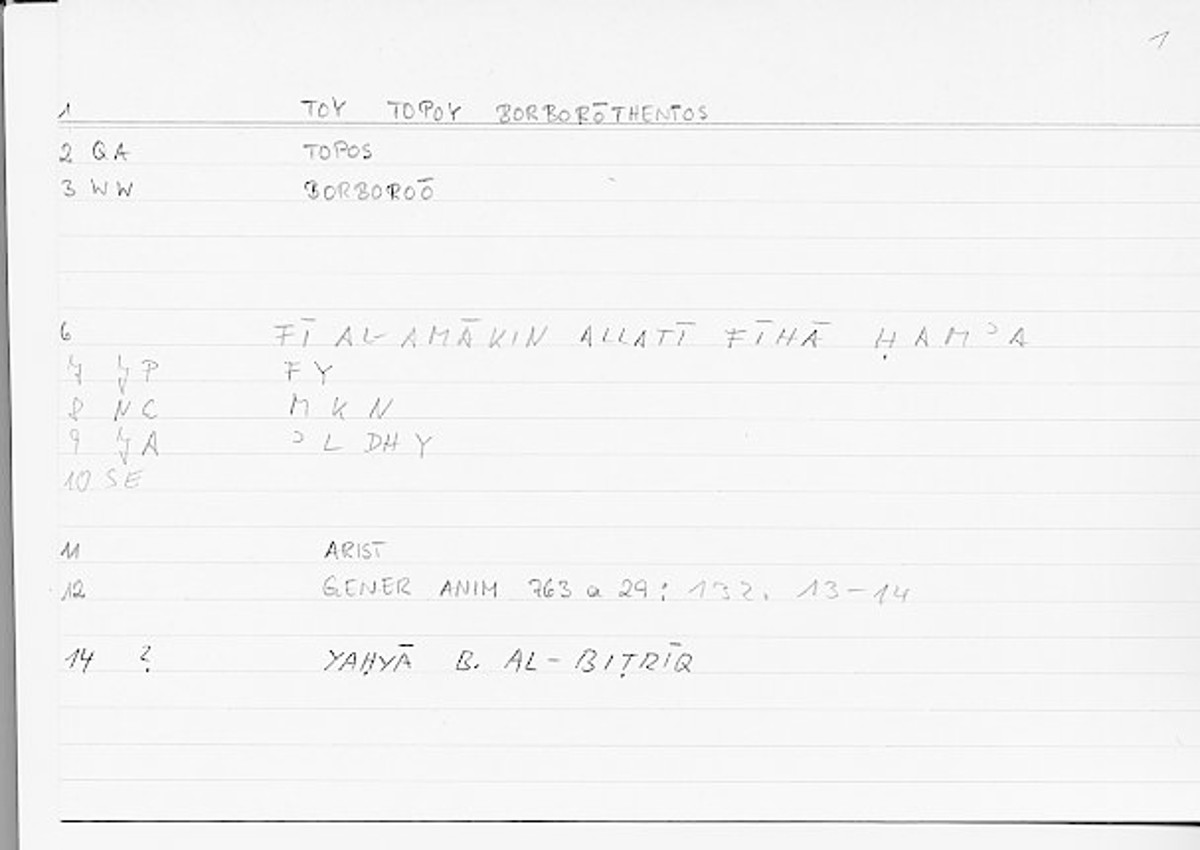 1
1 TOY TOPOY BORBORŌTHENTOS
2 QA TOPOS
3 WW BORBOROŌ
6 FĪ AL-AMĀKIN ALLATĪ FĪHĀ ḤAMɔA
7 YP FY
8 NC M K N
9 YA ɔ L DH Y
10 SE
11 ARIST
12 GENER ANIM 763 a 29: 132. 13-14
14 ? YAḤYĀ B. AL-BIṬRĪQ